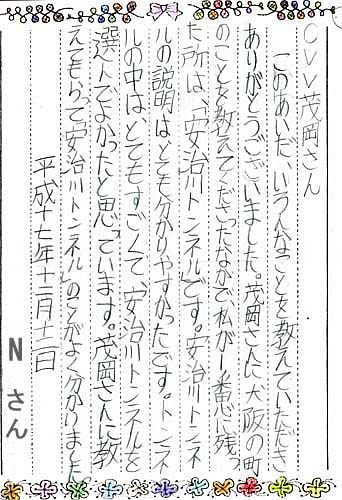 CVV茂岡さん
このあいだ、いろんなことを教えていただき
ありがとうございました。茂岡さんに大阪の町
のことを教えてくださったなかで、私が一番心に残っ
た所は、「安治川トンネル」です。安治川トンネ
ルの説明は、とても分かりやすかったです。トンネ
ルの中は、とてもすごくて、安治川トンネルを
選んでよかったと思っています。茂岡さんに教
えてもらって「安治川トンネル」のことがよく分かりました
平成十七年十二月十二日
Nさん